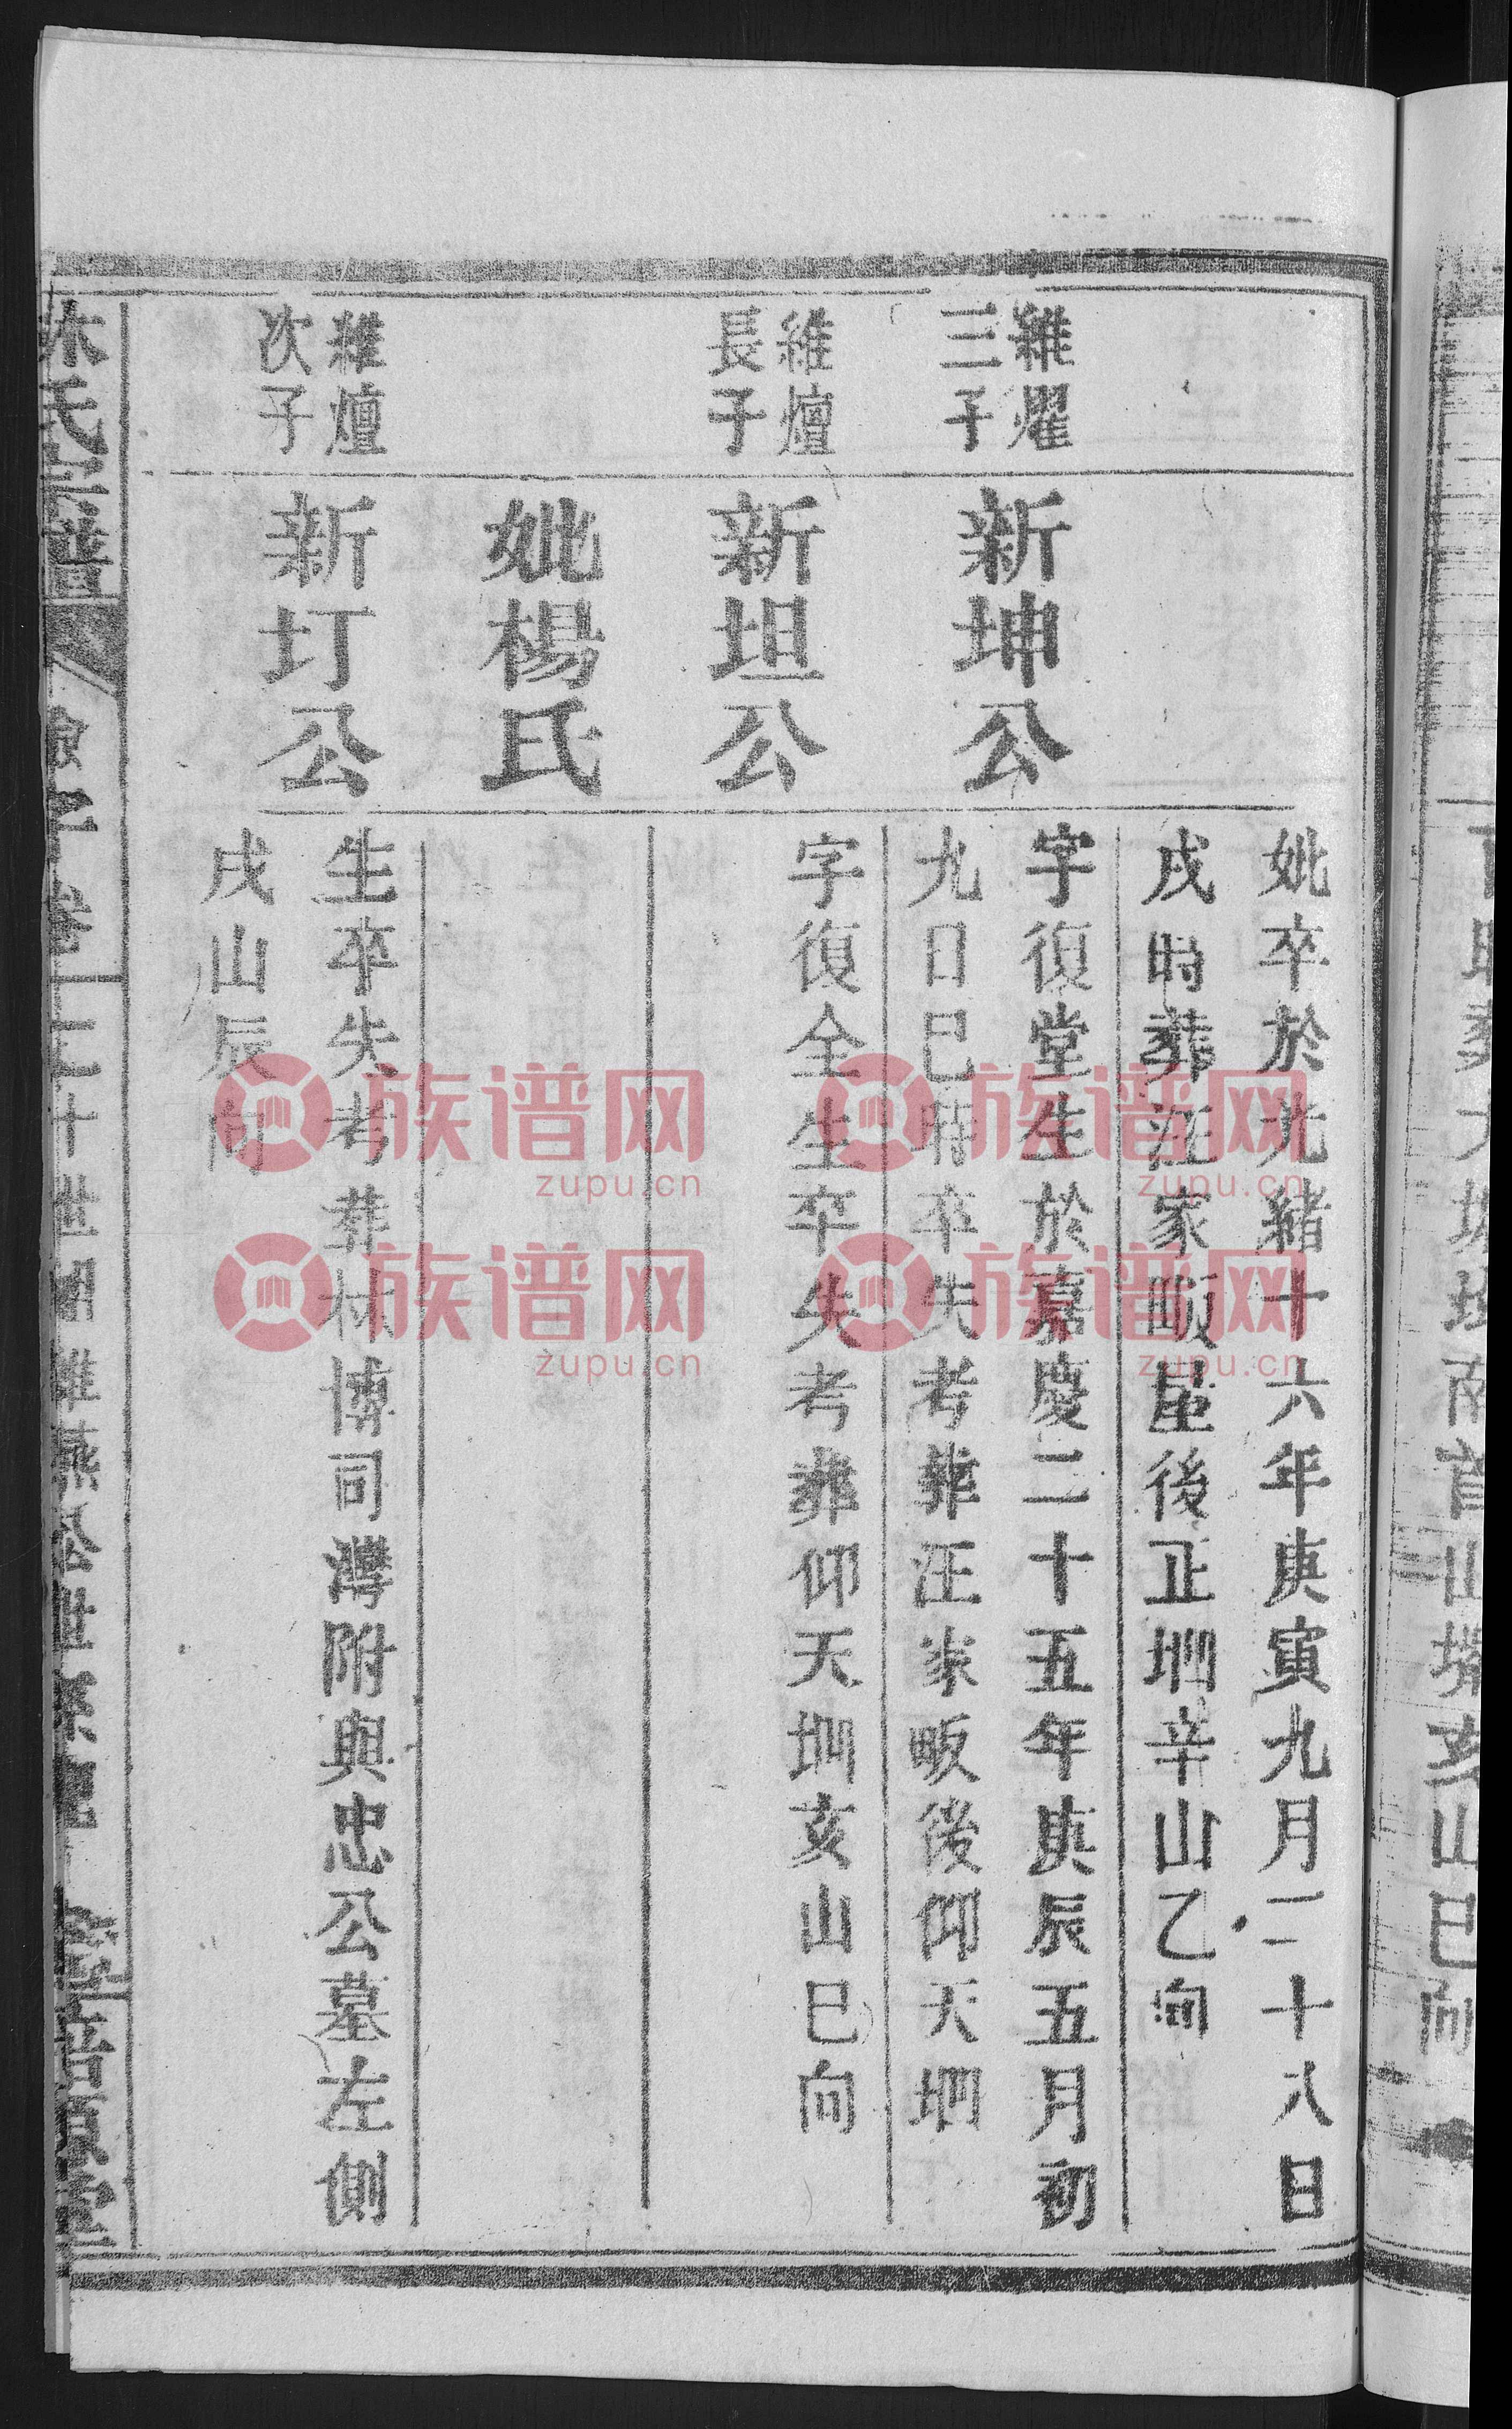 妣卒於光緒十六年庚寅九月二十八日
戌時葬汪家畈屋後正垇辛山乙向
維燿
三子
新坤公
字復堂生於嘉慶二十五年庚辰五月初
九日巳時卒失考葬汪家畈後仰天垇
維壇
長子
新坦公
字復全生卒失考葬仰天垇亥山巳向
妣楊氏
維壇
次子
新圢公
生卒失考葬林博司灣附與忠公墓左側
戌山辰向
氏宗譜
族谱网
zupu.cn
族谱网
zupu.cn
族谱网
zupu.cn
族谱网
zupu.cn